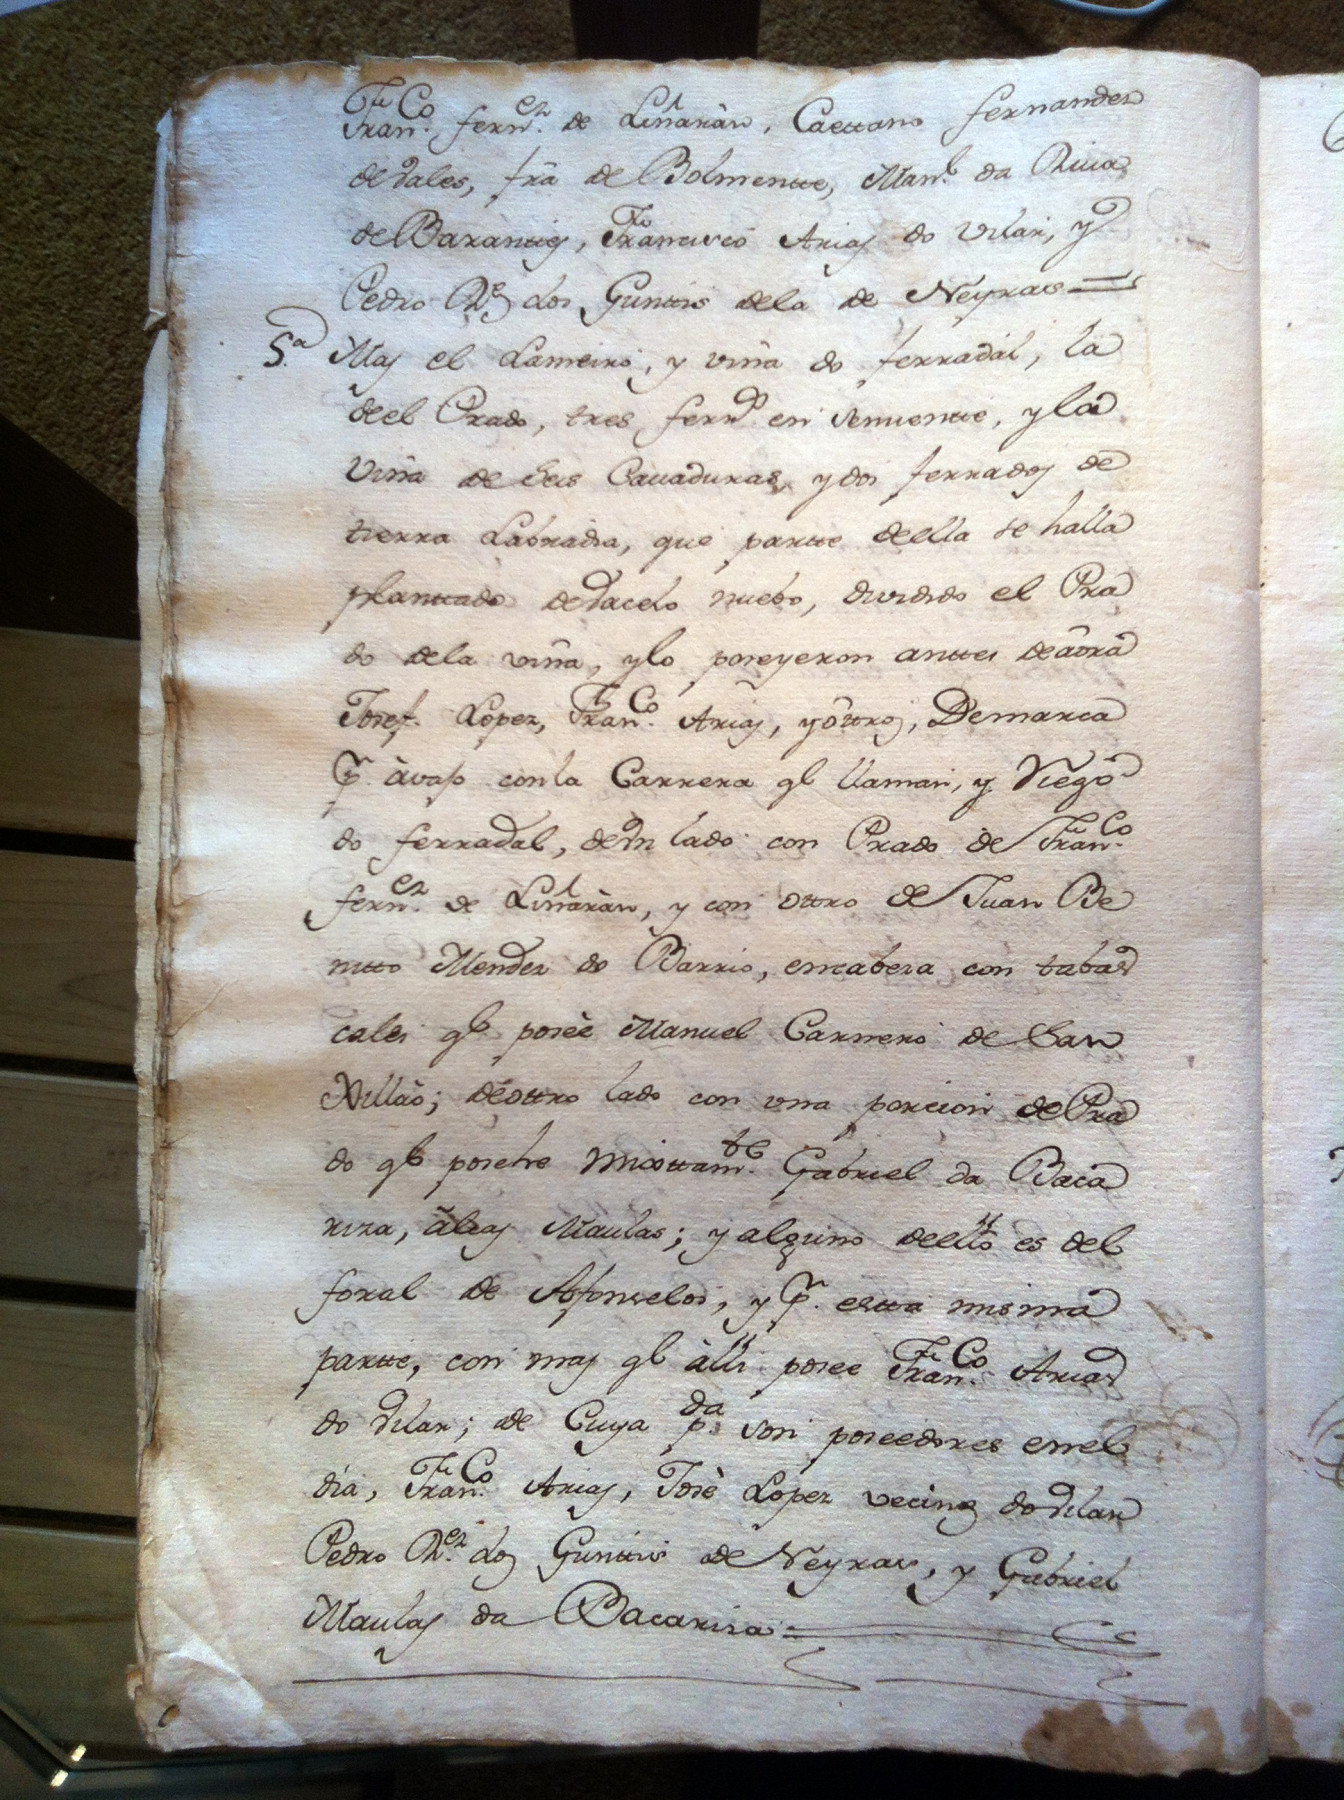 Fran.co fern.ez de Liñaràn, Caettano fernandez
de Vales, frã de Bolmentte, Man.l da Riua
de Barantes, Francisco Arias do Vilar, y
Pedro R.ez dos Gunttis dela de Neyras =
5.a Mas el Lameiro, y viña do ferradàl, la
de el Prado, tres ferr.dos en semientte, y la
viña de Seis Cauaduras, y dos ferrados de
tierra Labradia, que partte della se halla
planttado de Vacelo nuebo, dividido el Pra
do dela viña, y lo poseyeron anttes de aora
Josef. Lopez, Fran.co Arias, y ottros, Demarca
p.r àvaso con la Carrera q.e llaman, y Niego
do ferradal, de Vn lado con Prado de Fran.co
fern.ez de Liñaràn, y con ottro de Juan Be
nitto Mendez do Barrio, encabeza con tabas
cales q.e poseè Manuel Carnero de San
Xillao; de ottro lado con vna porcion de Pra
do q.e posehe mixttam.te Gabriel da Baca
riza, àleas Maulas; y alguno de ellos es del
foral de Afonselos, y p.r estta misma
partte, con mas q.e àlli posee Fran.co Arias
do Vilar; de Cuya p.da son poseedores en el
dia, Fran.co Arias, Josè Lopez vecinos do Vilar
Pedro R.ez dos Gunttis de Neyras, y Gabriel
Maulas da Bacariza =